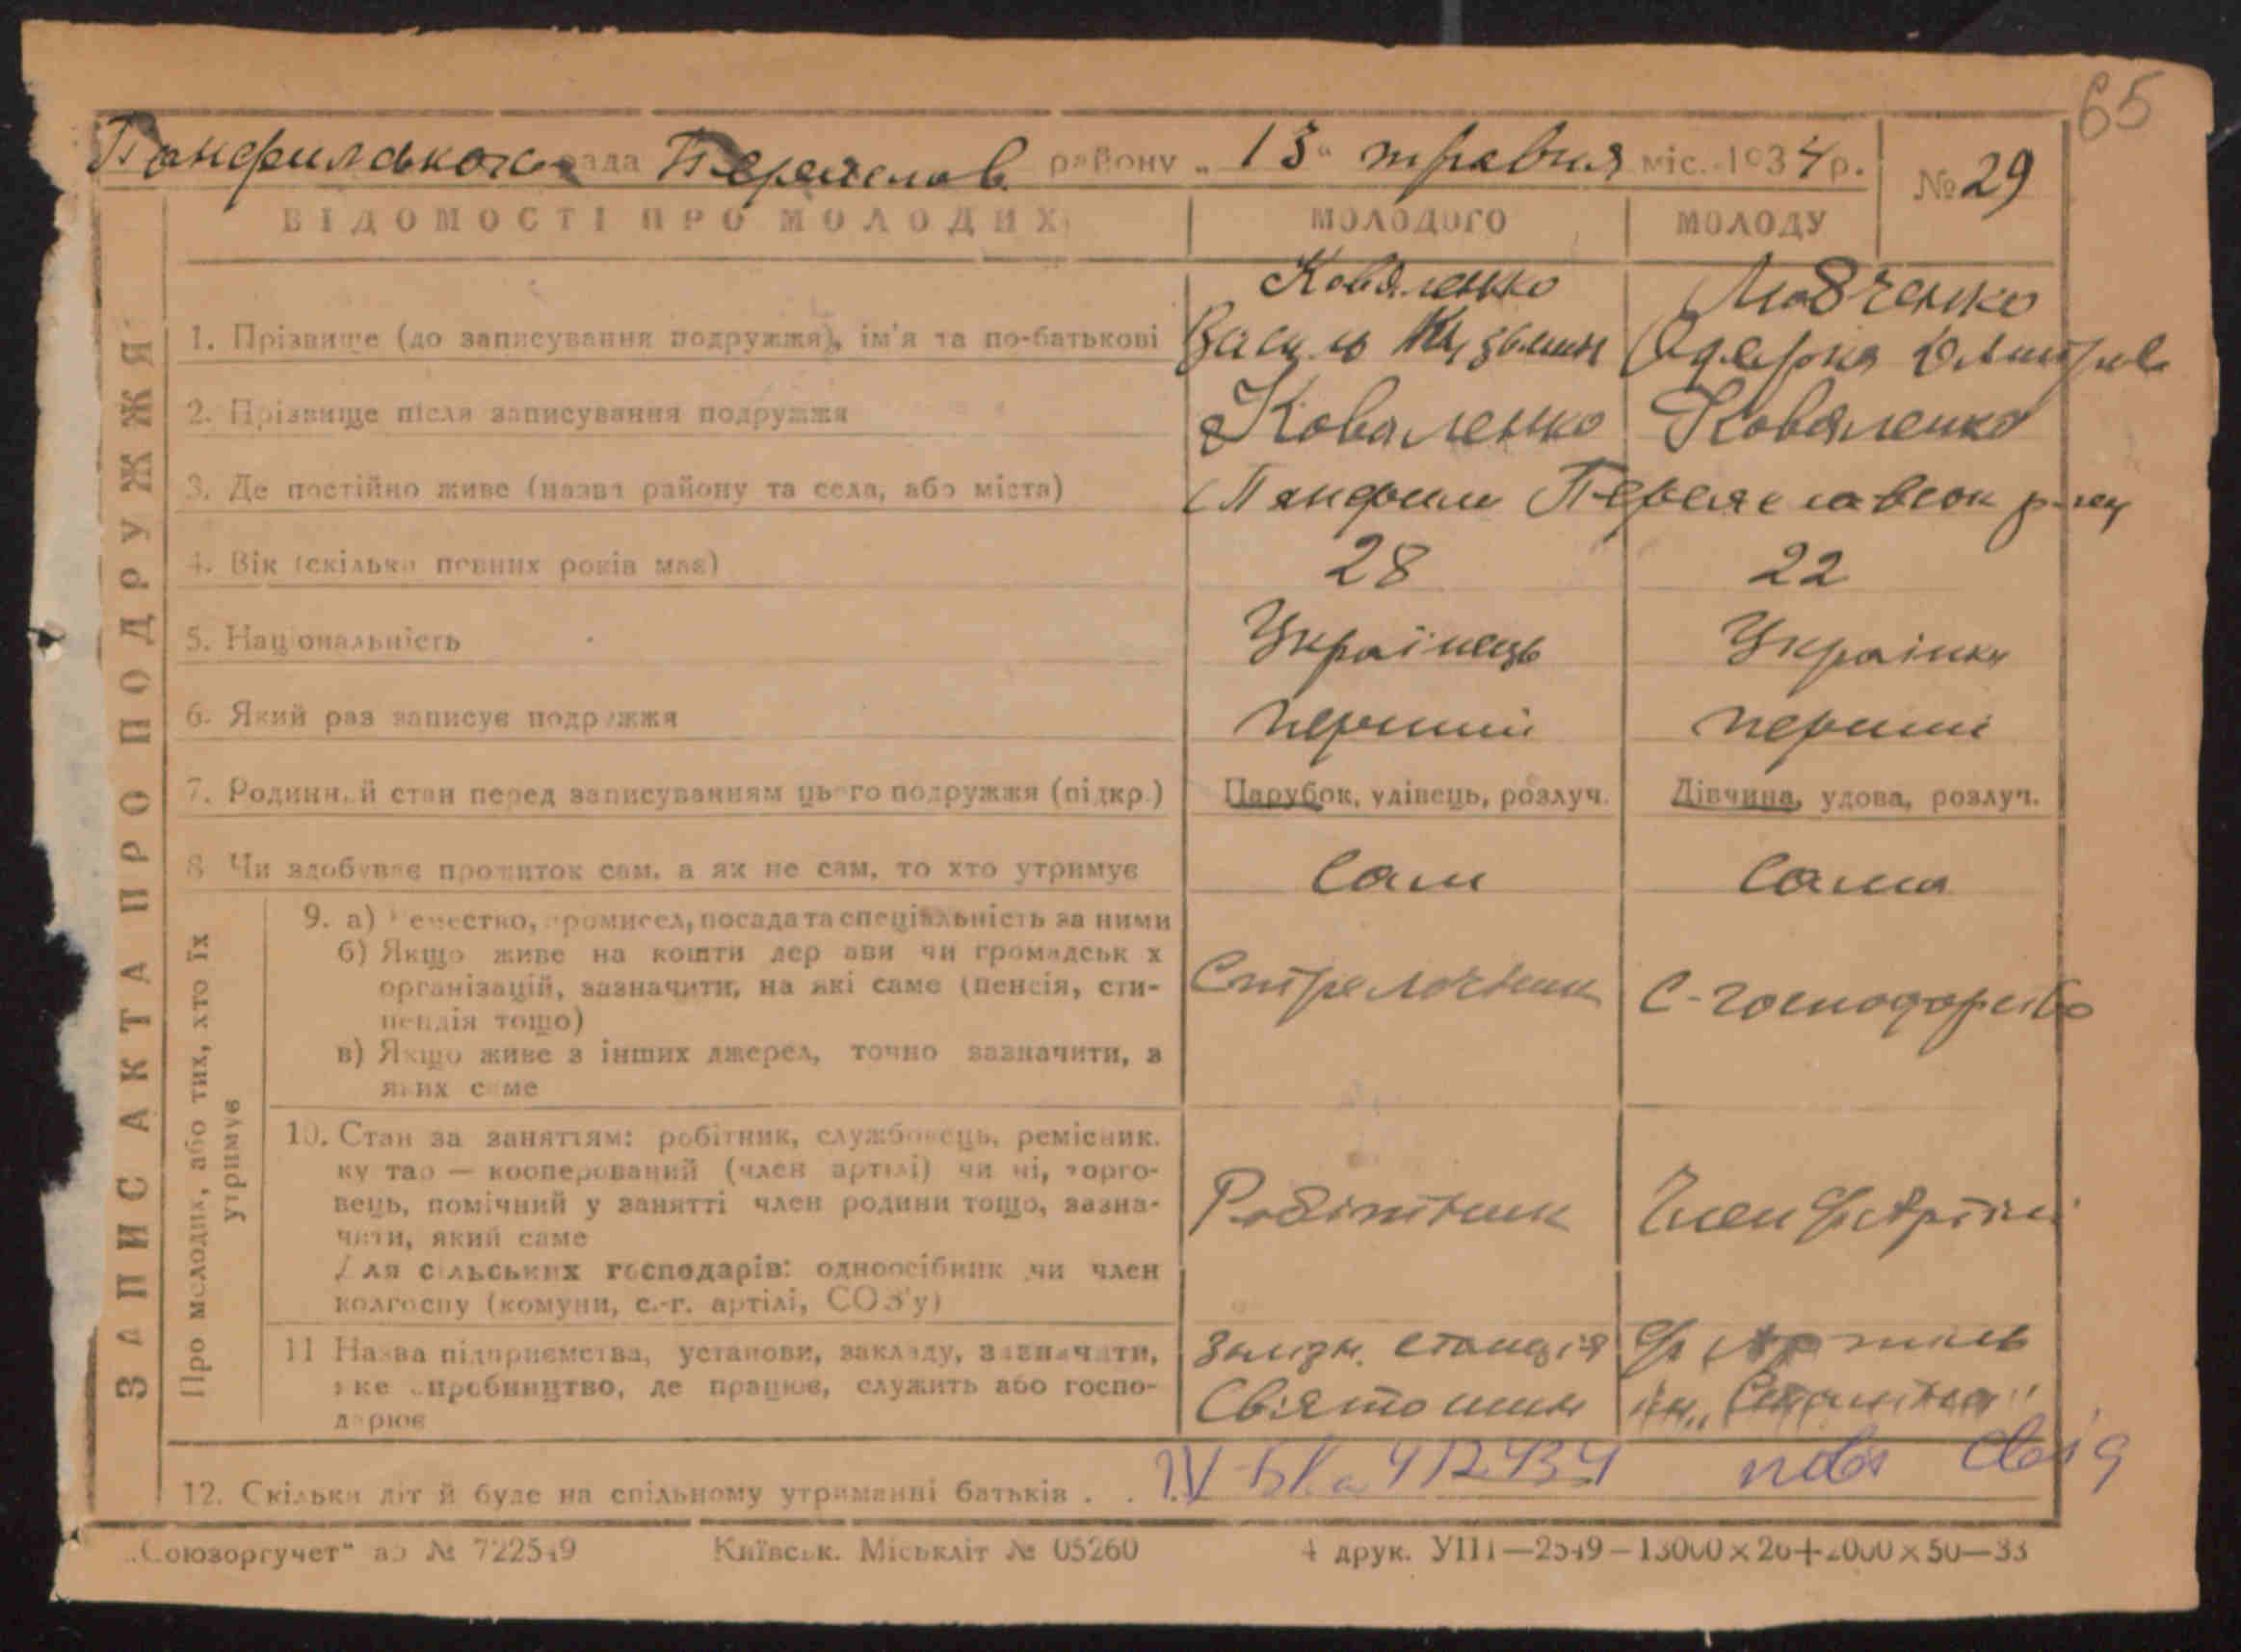 65
Панфильською рада Переяслав району „ 13 “ травня міс. 1934 р. № 29
ВІДОМОСТІ ПРО МОЛОДИХ МОЛОДОГО МОЛОДУ
ЗАПИС АКТА ПРО ПОДРУЖЖЯ
Коваленко
1. Прізвище (до записування подружжя), ім'я та по-батькові Василь Кузьмин
2. Прізвище після записування подружжя Коваленко Коваленко
3. Де постійно живе (назва району та села, або міста) Панфили Переяславськ р-ну
4. Вік (скільки повних років має) 28 22
5. Національність Українець Українка
6. Який раз записує подружжя перший перший
7. Родинний стан перед записуванням цього подружжя (підкр.) Парубок, удівець, розлуч. Дівчина, удова, розлуч.
8 Чи здобуває прожиток сам, а як не сам, то хто утримує Сам Сама
Про молодих, або тих, хто їх
утримує
9. а) Ремество, промисел, посада та спеціальність за ними
б) Якщо живе на кошти держави чи громадських
організацій, зазначити, на які саме (пенсія, сти-
пендія тощо)
Стрелочник С-господарство
в) Якщо живе з інших джерел, точно зазначити, з
яких саме
10. Стан за заняттям: робітник, службовець, ремісник.
кустар — кооперований (член артілі) чи ні, торго-
вець, помічний у занятті член родини тощо, зазна-
чити, який саме
Робітник Член Артіли
Для сільських господарів: одноосібник чи член
колгоспу (комуни, с.-г. артілі, СОЗ'у)
11 Назва підприємства, установи, закладу, зазначити, Залізн. станція Артиль
яке виробництво, де працює, служить або госпо- Святошин ім. „Сталіна"
дарює
12. Скільки літ й буде на спільному утриманні батьків . .
„Союзоргучет“ № 722549 Київськ. Міськліт № 05260 4 друк. УПП—2549—13000×20+2000×50—33